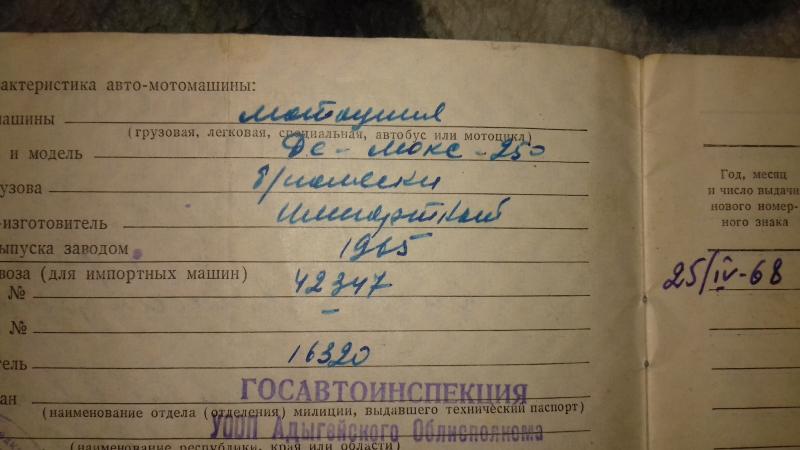 рактеристика авто-мотомашины:
машины мотоцикл
(грузовая, легковая, специальная, автобус или мотоцикл)
и модель Де-Мокс-250
узова б/коляски
-изготовитель Импорткой
выпуска заводом 1965
воза (для импортных машин)
№ 42347
№ —
тель 16320
ан ГОСАВТОИНСПЕКЦИЯ
(наименование отдела (отделения) милиции, выдавшего технический паспорт)
УООП Адыгейского Облисполкома
(наименование республики, края или области)
Год, месяц
и число выдачи
нового номер-
ного знака
25/IV-68